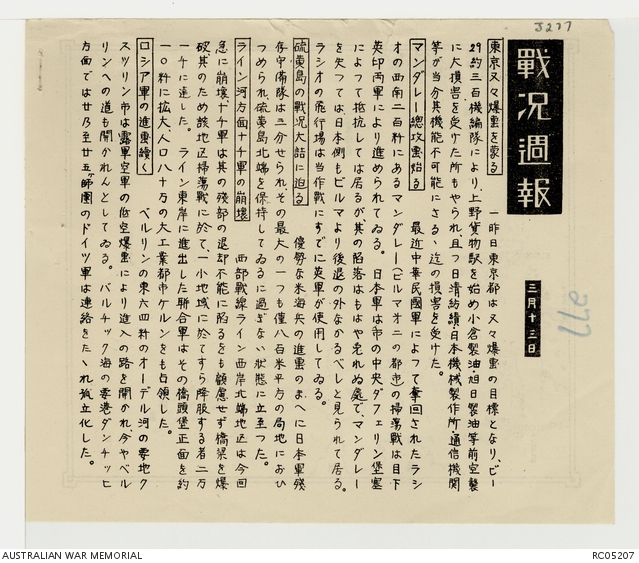 J277
戰況週報
三月十三日
977
東京又々爆撃を蒙る
一昨日東京都は又々爆撃の目標となり、ビー
29約三百機編隊により、上野貨物駅を始め小倉製油・旭日製油等前空襲
に大損害を受けた所もやられ、且つ日清紡績・日本機械製作所・通信機関
等が当分其機能不可能にさるゝ迄の損害を受けた。
マンダレー總攻撃始る
最近中華民國軍によつて奪回されたラシ
オの西南二百粁にあるマンダレー(ビルマオ二の都市)の掃蕩戰は目下
英印両軍により進められてゐる。日本軍は市の中央ダフェリン堡塞
によつて抵抗しては居るが、其の陥落はもはや免れぬ處で、マンダレー
を失つては、日本側もビルマより後退の外なかるべしと見られて居る。
ラシオの飛行場は当作戰にすでに英軍が使用してゐる。
硫黄島の戰況大詰に迫る
優勢な米海兵の進撃のまへに日本軍残
存守備隊は三分せられ、その最大の一つも僅八百米平方の局地におひ
つめられ、硫黄島北端を保持してゐるに過ぎない状態に立至つた。
ライン河方面ナチ軍の崩壊
西部戰線ライン西岸北端地区は今回
急に崩壊、ナチ軍は其の残部の退却不能に陥るをも顧慮せず橋梁を爆
破、其のため該地区掃蕩戰に於て、一小地域に於てすら降服する者二万
一千に達した。ライン東岸に進出した聯合軍はその橋頭堡正面を約
一〇粁に拡大、人口八十万の大工業都市ケルンをも占領した。
ロシア軍の進撃續く
ベルリンの東六四粁のオーデル河の要地ク
スツリン市は露軍空軍の低空爆撃により進入の路を開かれ、今やベル
リンへの道も開かれんとしてゐる。バルチック海の要港ダンチッヒ
方面では廿乃至廿五ヶ師團のドイツ軍は連絡をたゝれ孤立化した。
AUSTRALIAN WAR MEMORIAL
RC05207